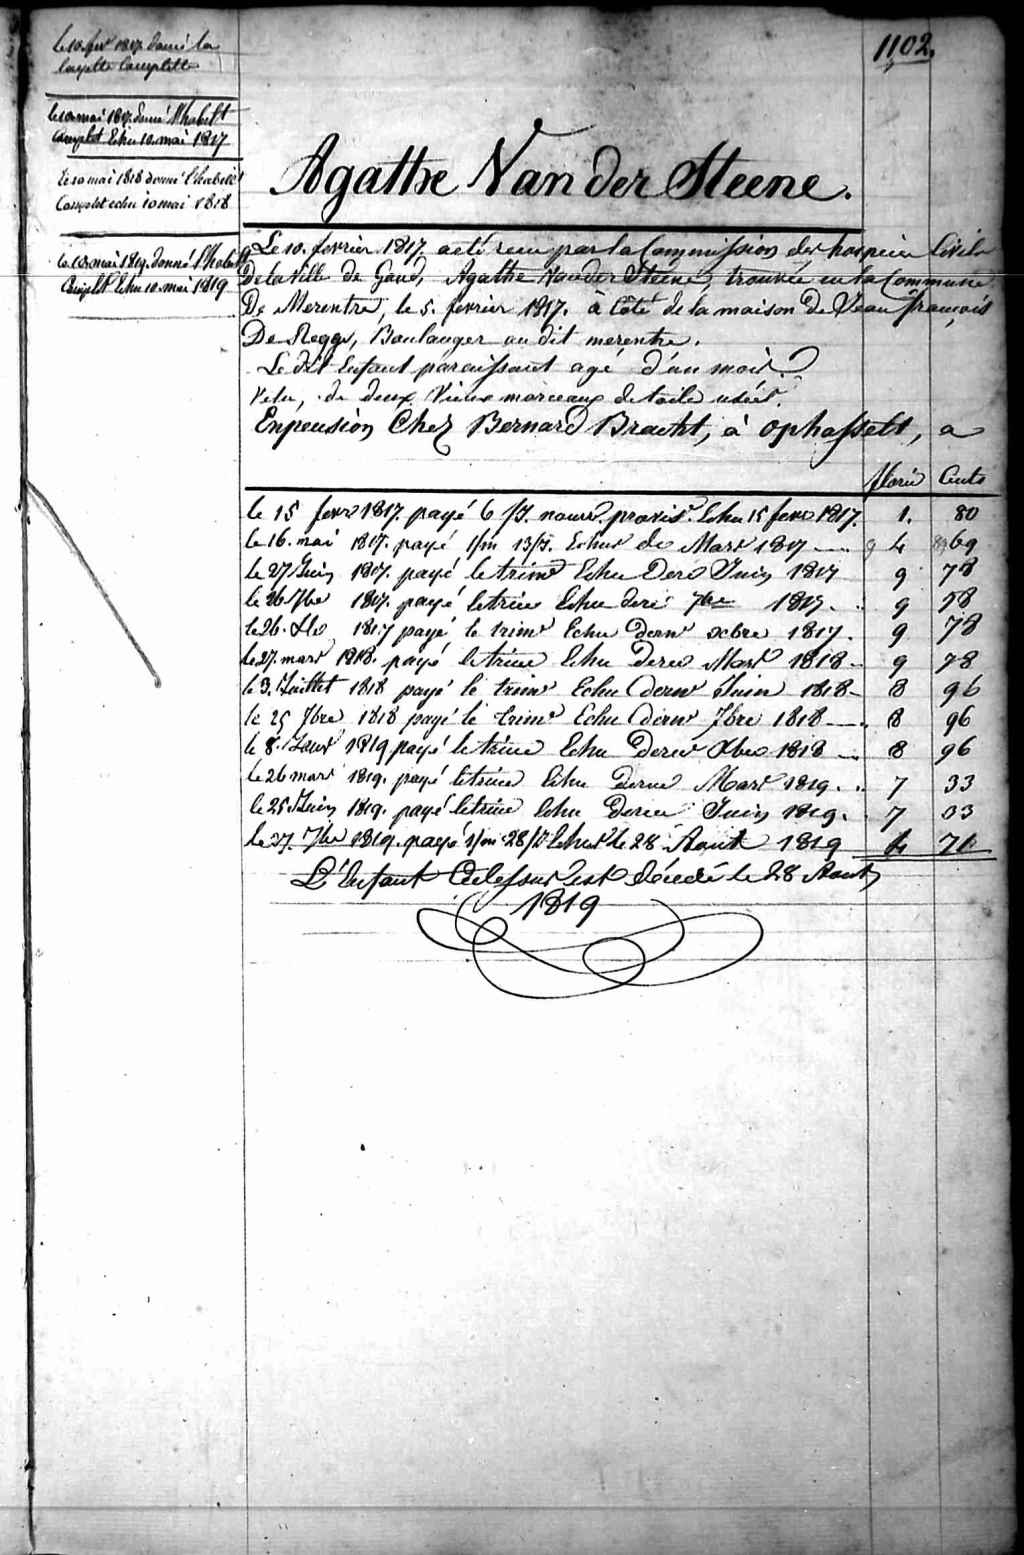 1102.
le 10 fevr 1817. donné la
layette Complette
le 10 mai 1817. donné l'habilt
Complet Echu 10. mai 1817
Le 10 mai 1818 donné l'habilt
Complet echu 10 mai 1818
le 10. mai 1819. donné l'habilt
Complet Echu 10. mai 1819
Agathe Van der Steene.
Le 10. fevrier 1817. a eté recu par la Commission des hospices Civils
De la ville de Gand, Agathe Van der Steene, trouvée en la Commune
De Merentre, le 5. fevrier 1817. à Coté de la maison de Jean françois
De Boulanger au dit merentre.
Le dit Enfant paraissant agé d'un mois
Vetu, de deux Vieux morceaux de toile usées.
Enpension Chez Bernard Bracht, à ophasselt, a
florin Cents
le 15 fevr 1817. payé 6 /J. nourr. provis. Echu 15 fevr 1817. 1. 80
le 16. mai 1817. payé 1/m 13/J. Echus de Mars 1817 4 69
le 27 Juin 1817. payé le trime Echu Dere Juin 1817 9 78
le 26 7bre 1817. payé le trim Echu dere 7bre 1817. 9 78
le 26. Xbre 1817 payé le trimr Echu dernr xbre 1817. 9 78
le 27. mars 1818. payé le trim Echu Derer Mars 1818 9 78
le 3. Juillet 1818 payé le trimr Echu dernr Juin 1818 8 96
le 25 7bre 1818 payé le trimr Echu dernr 7bre 1818 8 96
le 8. Janvr 1819 payé le trim Echu Derer Xbre 1818 8 96
le 26 mars 1819. payé le trim Echu Derner Mars 1819. 7 33
le 25 Juin 1819. payé le trim Echu Derer Juin 1819. 7 33
le 7bre 1819. payé 1/m 28/J Echus le 28 Aout 1819 4 71
L'Enfant Cidessus est décédé le 28 Aout
1819